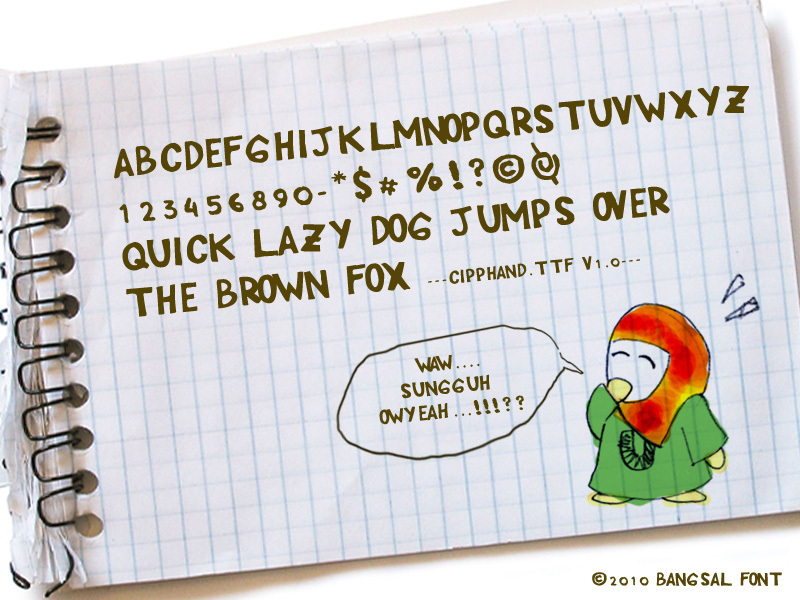 ABCDEFGHIJKLMNOPQRSTUVWXYZ
123456890-*$#%!?©@
QUICK LAZY DOG JUMPS OVER
THE BROWN FOX ---CIPPHAND.TTF V1.0---
WAW....
SUNGGUH
OWYEAH...!!!??
©2010 BANGSAL FONT